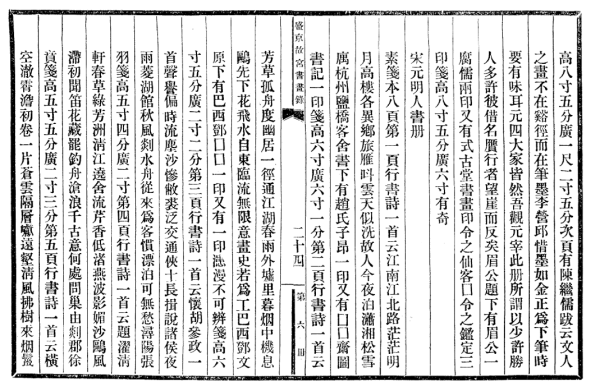 高八寸五分廣一尺二寸五分次頁有陳繼儒跋云文人
之畫不在谿徑而在筆墨李營邱惜墨如金正為下筆時
要有味耳元四大家皆然吾觀元宰此册所謂以少許勝
人多許彼借名贗行者望崖而反矣眉公題下有眉公一
腐儒兩印又有式古堂書畫印令之仙客口令之鑑定三
印箋高八寸五分廣六寸有奇
宋元明人書册
素箋本八頁第一頁行書詩一首云江南江北路茫茫明
月高樓各異鄉旅雁呌雲天似洗故人今夜泊瀟湘松雪
廎杭州鹽橋客舍書下有趙氏子昂一印又有口口齋圖
書記一印箋高六寸廣六寸一分第二頁行書詩一首云
盛京故宮書畫錄
二十四
第六冊
芳草孤舟度幽居一徑通江湖春雨外墟里暮烟中機息
鷗先下花飛水自東臨流無限意史若為工巴西鄧文
原下有巴西鄧口口一印又有一印漶漫不可辨箋高六
寸五分廣二寸二分第三頁行書詩一首云懷胡參政一
首聲譽偏時流塵沙慘敝裘泛交通俠士長揖說諸侯夜
雨菱湖館秋風剡水舟從來為客慣漂泊可無愁潯陽張
羽箋高五寸四分廣二寸第四頁行書詩一首云題濯清
軒春草綠芳洲淸江遶舍流芹香低渚燕波影媚沙鷗風
滯初聞笛花藏罷釣舟滄浪千古意何處問巢由剡郡徐
賁箋高五寸五分廣二寸三分第五頁行書詩一首云橫
空澈霄澹初卷一片蒼雲隔層巘遠壑淸風拂樹來烟鬟